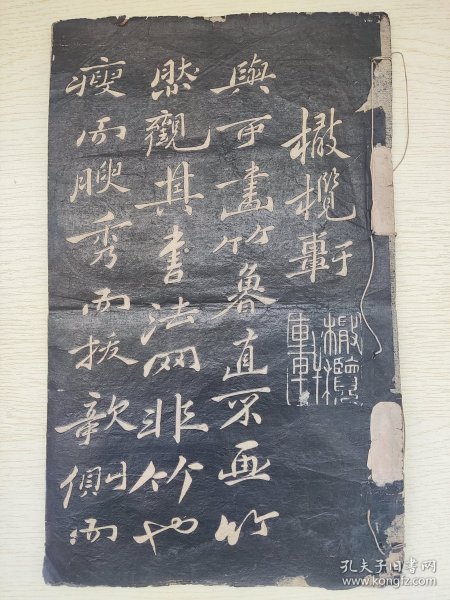 橄欖軒
橄欖軒
與可畫竹魯直不画竹
然觀其書法罔非竹也
瘦而腴秀而拔欹側而
孔夫子旧书网
www.kongfz.com